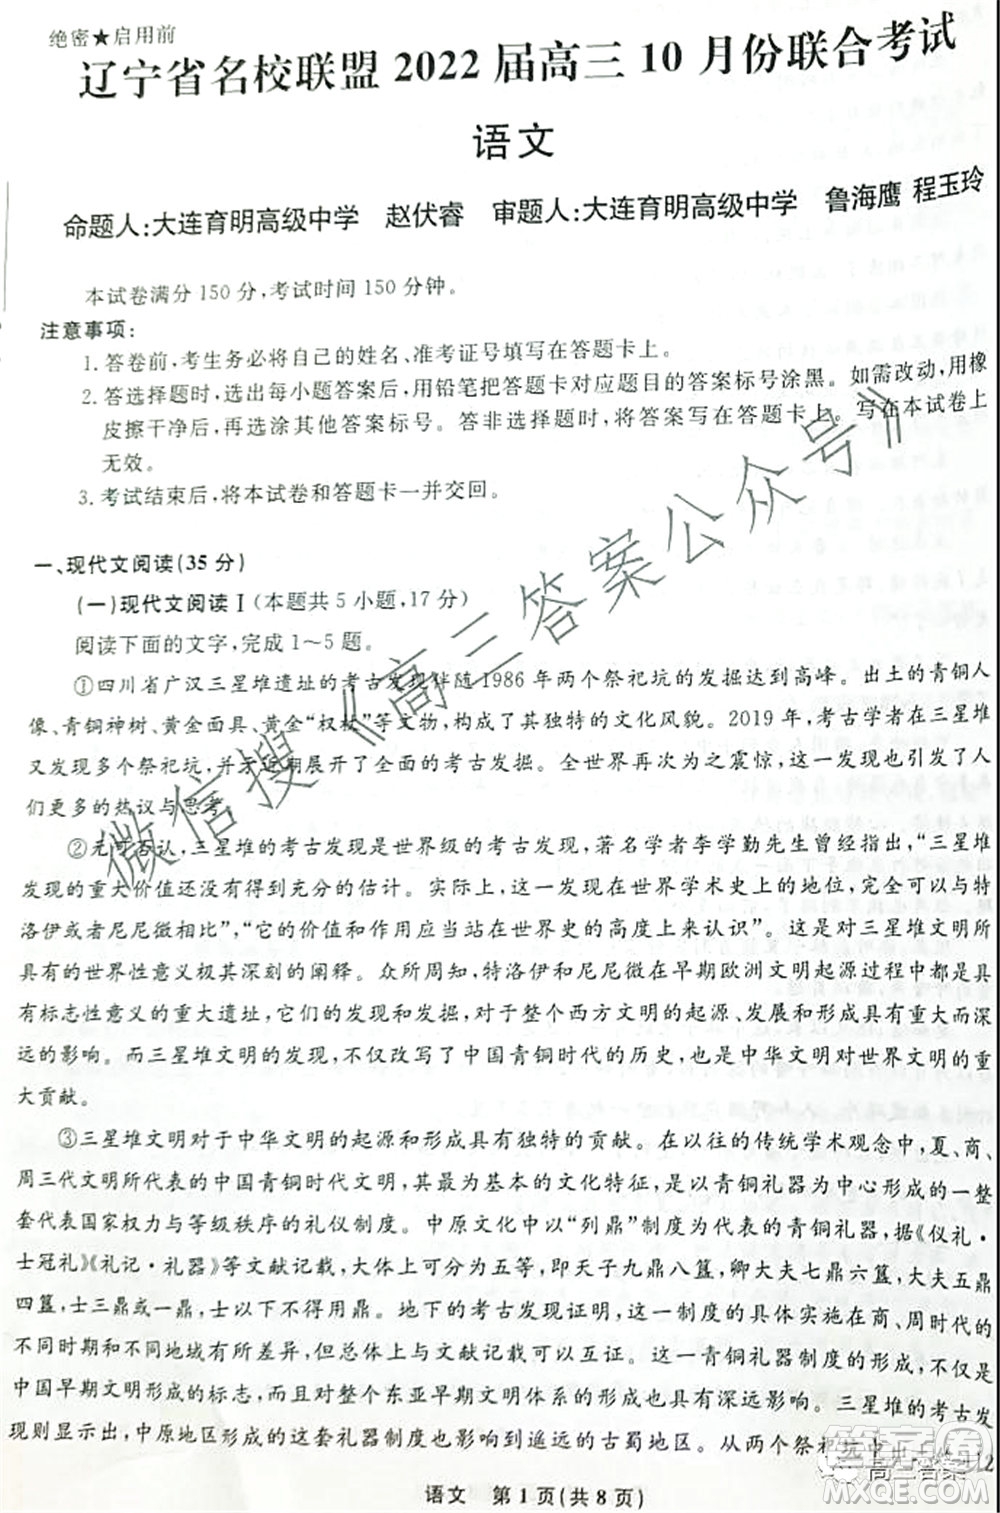 绝密★启用前
辽宁省名校联盟 2022 届高三 10 月份联合考试
语文
命题人:大连育明高级中学 赵伏睿 审题人:大连育明高级中学 鲁海鹰 程玉玲
本试卷满分 150 分,考试时间 150 分钟。
注意事项:
1. 答卷前,考生务必将自己的姓名、准考证号填写在答题卡上。
2. 答选择题时,选出每小题答案后,用铅笔把答题卡对应题目的答案标号涂黑。如需改动,用橡
皮擦干净后,再选涂其他答案标号。答非选择题时,将答案写在答题卡上。写在本试卷上
无效。
3. 考试结束后,将本试卷和答题卡一并交回。
一、现代文阅读(35 分)
(一)现代文阅读Ⅰ(本题共 5 小题,17 分)
阅读下面的文字,完成 1～5 题。
①四川省广汉三星堆遗址的考古发现伴随 1986 年两个祭祀坑的发掘达到高峰。出土的青铜人
像、青铜神树、黄金面具、黄金“权杖”等文物,构成了其独特的文化风貌。2019 年,考古学者在三星堆
又发现多个祭祀坑,并于近期展开了全面的考古发掘。全世界再次为之震惊,这一发现引发了人
们更多的热议与思考。
②无可否认,三星堆的考古发现是世界级的考古发现,著名学者李学勤先生曾经指出,“三星堆
发现的重大价值还没有得到充分的估计。实际上,这一发现在世界学术史上的地位,完全可以与特
洛伊或者尼尼微相比”,“它的价值和作用应当站在世界史的高度上来认识”。这是对三星堆文明所
具有的世界性意义极其深刻的阐释。众所周知,特洛伊和尼尼微在早期欧洲文明起源过程中都是具
有标志性意义的重大遗址,它们的发现和发掘,对于整个西方文明的起源、发展具有重大而深
远的影响。而三星堆文明的发现,不仅改写了中国青铜时代的历史,也是中华文明对世界文明的重
大贡献。
③三星堆文明对于中华文明的起源和形成具有独特的贡献。在以往的传统学术观念中,夏、商、
周三代文明所代表的中国青铜时代文明,其最为基本的文化特征,是以青铜礼器为中心形成的一整
套代表国家权力与等级秩序的礼仪制度。中原文化中以“列鼎”制度为代表的青铜礼器,据《仪礼·
士冠礼》《礼记·礼器》等文献记载,大体上可分为五等,即天子九鼎八簋,卿大夫七鼎六簋,大夫五鼎
四簋,士三鼎或一鼎,士以下不得用鼎。地下的考古发现证明,这一制度的具体实施在商、周时代的
不同时期和不同地域有所差异,但总体上与文献记载可以互证。这一青铜礼器制度的形成,不仅是
中国早期文明形成的标志,而且影响到整个东亚早期文明体系的形成与发展。三星堆的考古发
现则显示出,中原地区形成的这套礼器制度也影响到遥远的古蜀地区。从两个祭祀坑中出土的
语文 第 1 页(共 8 页)
微信搜《高三答案公众号》
高三答案